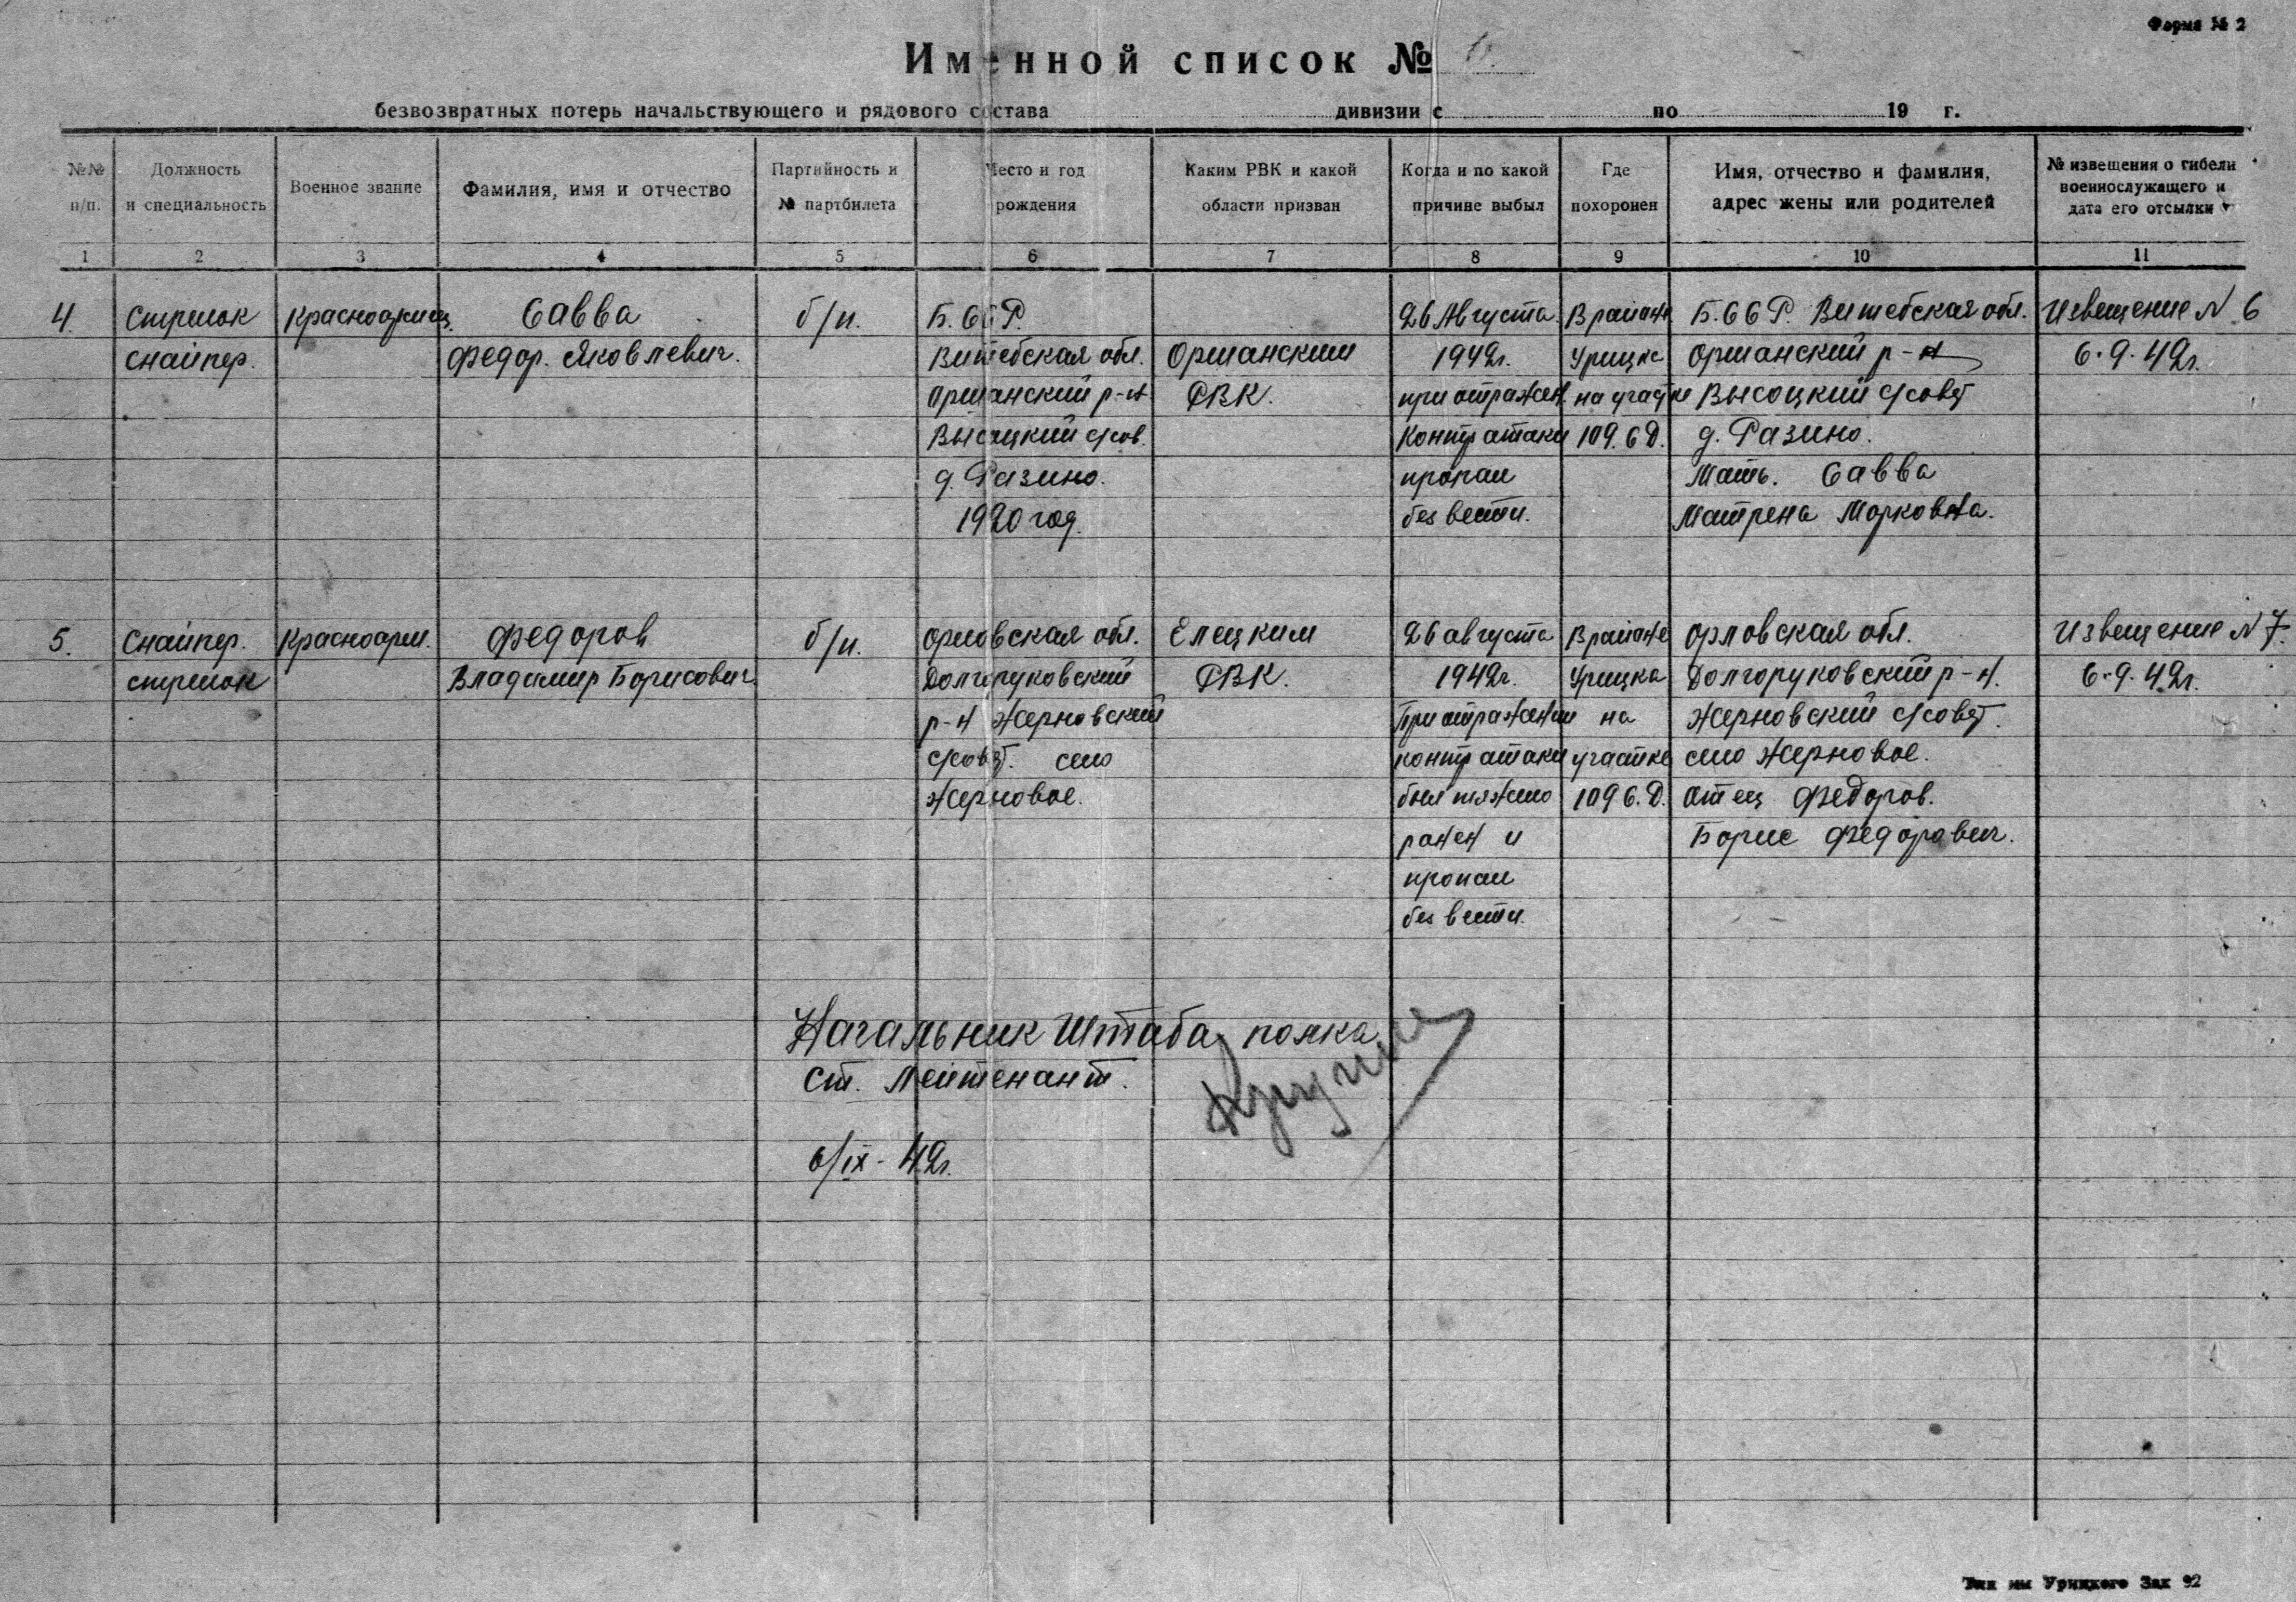 Форма № 2
Именной список №
безвозвратных потерь начальствующего и рядового состава дивизии с по 19 г.
№№ п/п.
Должность и специальность
Военное звание
Фамилия, имя и отчество
Партийность и № партбилета
Место и год рождения
Каким РВК и какой области призван
Когда и по какой причине выбыл
Где похоронен
Имя, отчество и фамилия, адрес жены или родителей
№ извещения о гибели военнослужащего и дата его отсылки
1 2 3 4 5 6 7 8 9 10 11
4.
Стрелок
снайпер.
Красноармеец.
Савва
Федор. Яковлевич.
б/п.
Б.ССР.
Витебская обл.
Оршанский р-н
Высоцкий с/сов.
д. Разино.
1920 год.
Оршанским
РВК.
26 Августа
1942г.
при отражен.
контратаки
пропал
без вести.
В районе
Урицка
на участке
109.С.Д.
Б.ССР. Витебская обл.
Оршанский р-н
Высоцкий с/совет
д. Разино.
Мать. Савва
Матрена Морковна.
Извещение N 6
6.9.42г.
5.
Снайпер.
стрелок
Красноарм.
Федоров
Владимир Борисович
б/п.
Орловская обл.
Долгоруковский
р-н Жерновский
с/совет. село
Жерновое.
Елецким
РВК.
26 августа
1942г.
При отражении
контратаки
был тяжело
ранен и
пропал
без вести.
В районе
Урицка
на
участке
109 С.Д.
Орловская обл.
Долгоруковский р-н.
Жерновский с/совет.
село Жерновое.
Отец Федоров.
Борис Федорович.
Извещение N 7
6.9.42г.
Начальник Штаба полка
Ст. Лейтенант.
6/IX-42г.
Тип им Урицкого Зак 92